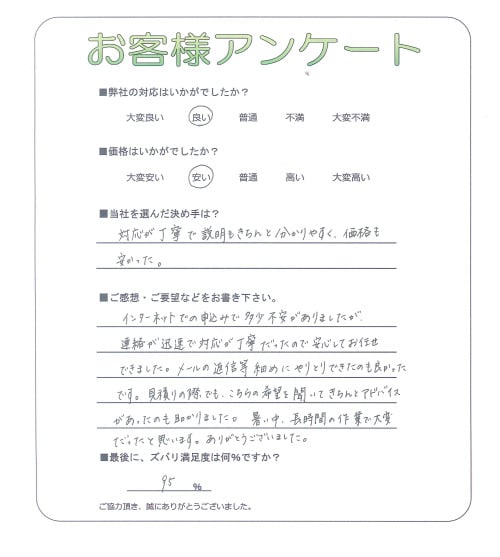 お客様アンケート
■弊社の対応はいかがでしたか？
大変良い 良い 普通 不満 大変不満
■価格はいかがでしたか？
大変安い 安い 普通 高い 大変高い
■当社を選んだ決め手は？
対応が丁寧で説明もきちんと分かりやすく、価格も
安かった。
■ご感想・ご要望などをお書き下さい。
インターネットでの申込みで多少不安がありましたが
連絡が迅速で対応が丁寧だったので安心してお任せ
できました。メールの返信等細めにやりとりできたのも良かった
です。見積りの際でも、こちらの希望を聞いてきちんとアドバイス
があったのも助かりました。暑い中、長時間の作業で大変
だったと思います。ありがとうございました。
■最後に、ズバリ満足度は何％ですか？
95 ％
ご協力頂き、誠にありがとうございました。